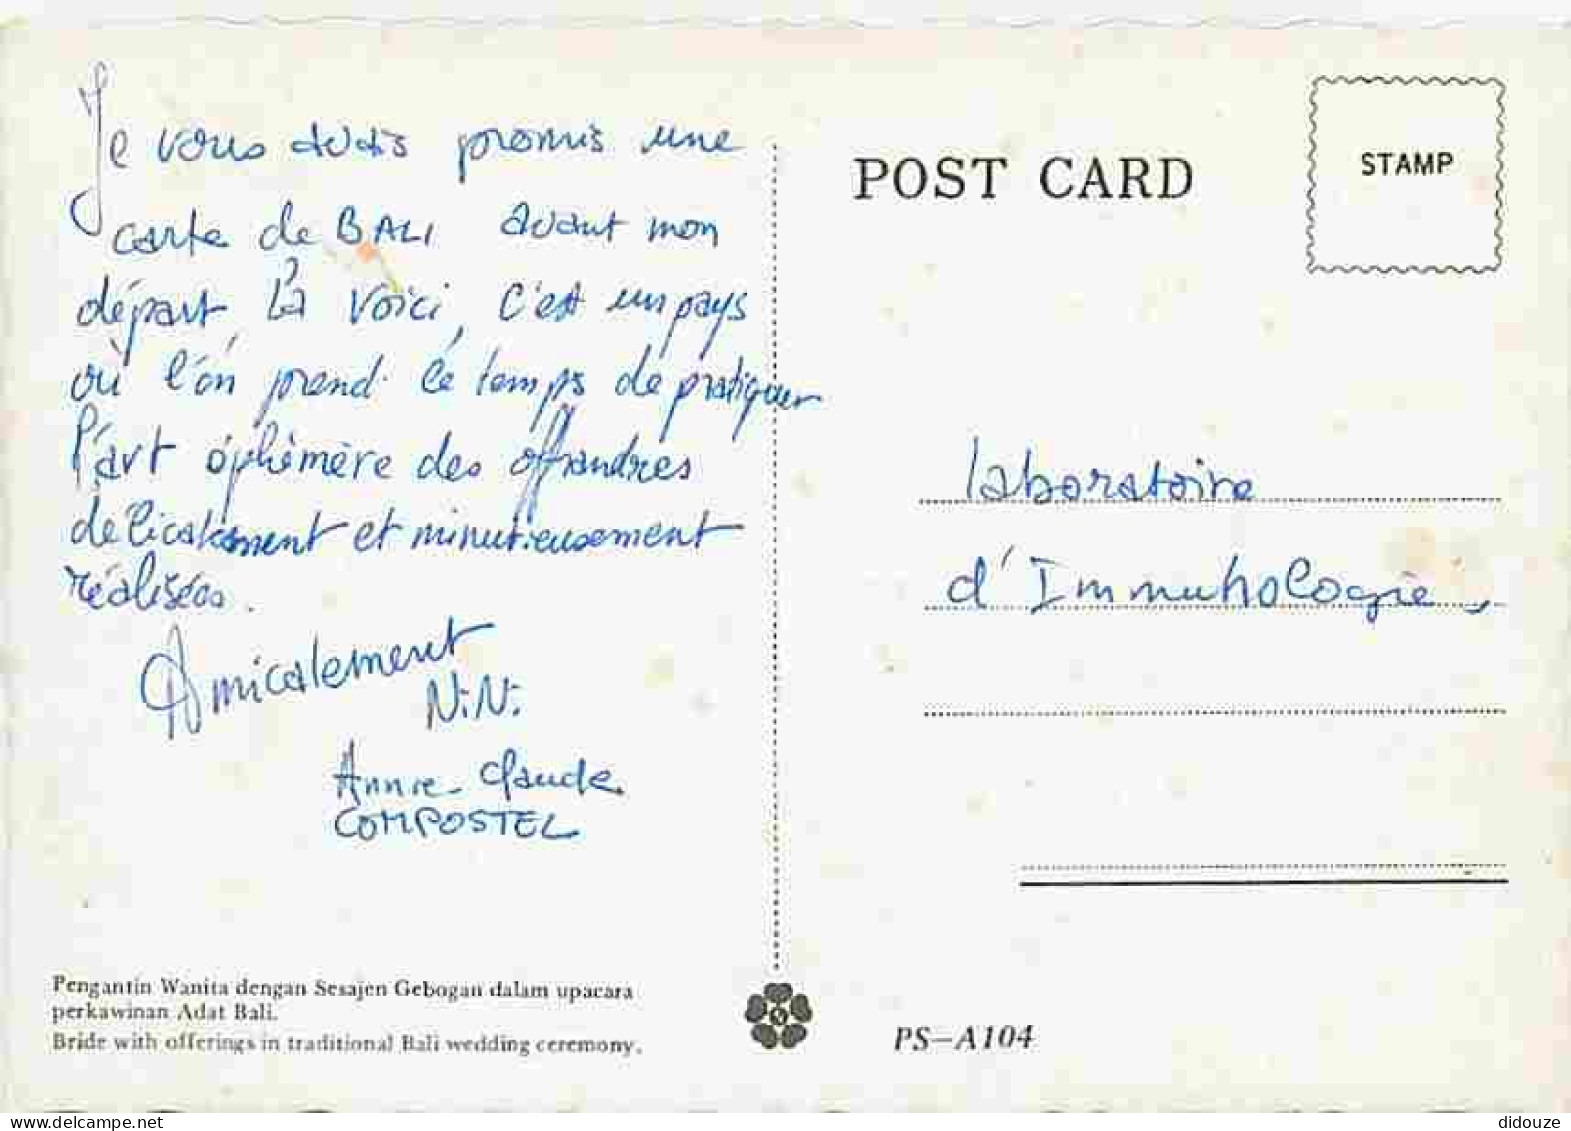 Je vous avais promis une
carte de BALI avant mon
départ, la voici, c'est un pays
où l'on prend le temps de pratiquer
l'art éphémère des offrandres
délicatement et minutieusement
réalisées.
Amicalement
N.N.
Annie-Claude
COMPOSTEL
Pengantin Wanita dengan Sesajen Gebogan dalam upacara
perkawinan Adat Bali.
Bride with offerings in traditional Bali wedding ceremony.
POST CARD
STAMP
laboratoire
d'Immunologie
PS-A104
didouze